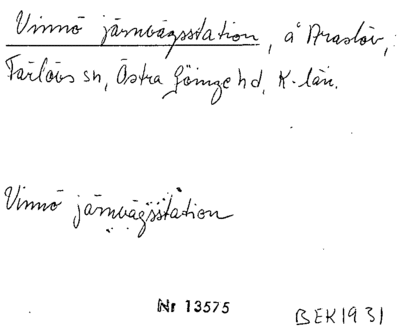 Vinnö järnvägsstation, å Araslöv,
Färlövs sn, Östra Göinge hd, K-län.
Vinnö järnvägsstation
Nr 13575
BEK1931